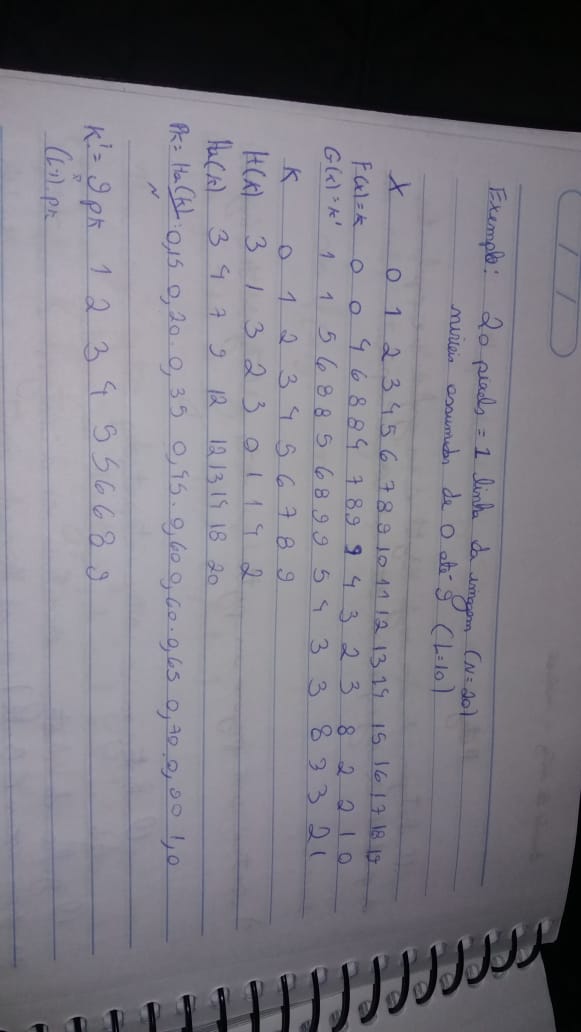 Exemplo: 20 pixels = 1 linha da imagem (N=20)
níveis assumidos de 0 até 9 (L=10)
X 0 1 2 3 4 5 6 7 8 9 10 11 12 13 14 15 16 17 18 19
F(x)=k 0 0 4 6 8 8 4 7 8 9 9 4 3 2 3 8 2 2 1 0
G(x)=k' 1 1 5 6 8 8 5 6 8 9 9 5 4 3 3 8 3 3 2 1
K 0 1 2 3 4 5 6 7 8 9
H(k) 3 1 3 2 3 0 1 1 4 2
Ha(k) 3 4 7 9 12 12 13 14 18 20
Pk = Ha(k)/N : 0,15 0,20 . 0,35 0,45 . 0,60 0,60 . 0,65 0,70 . 0,90 1,0
k' = 9 pk 1 2 3 4 5 5 6 6 8 9
(L-1).pk